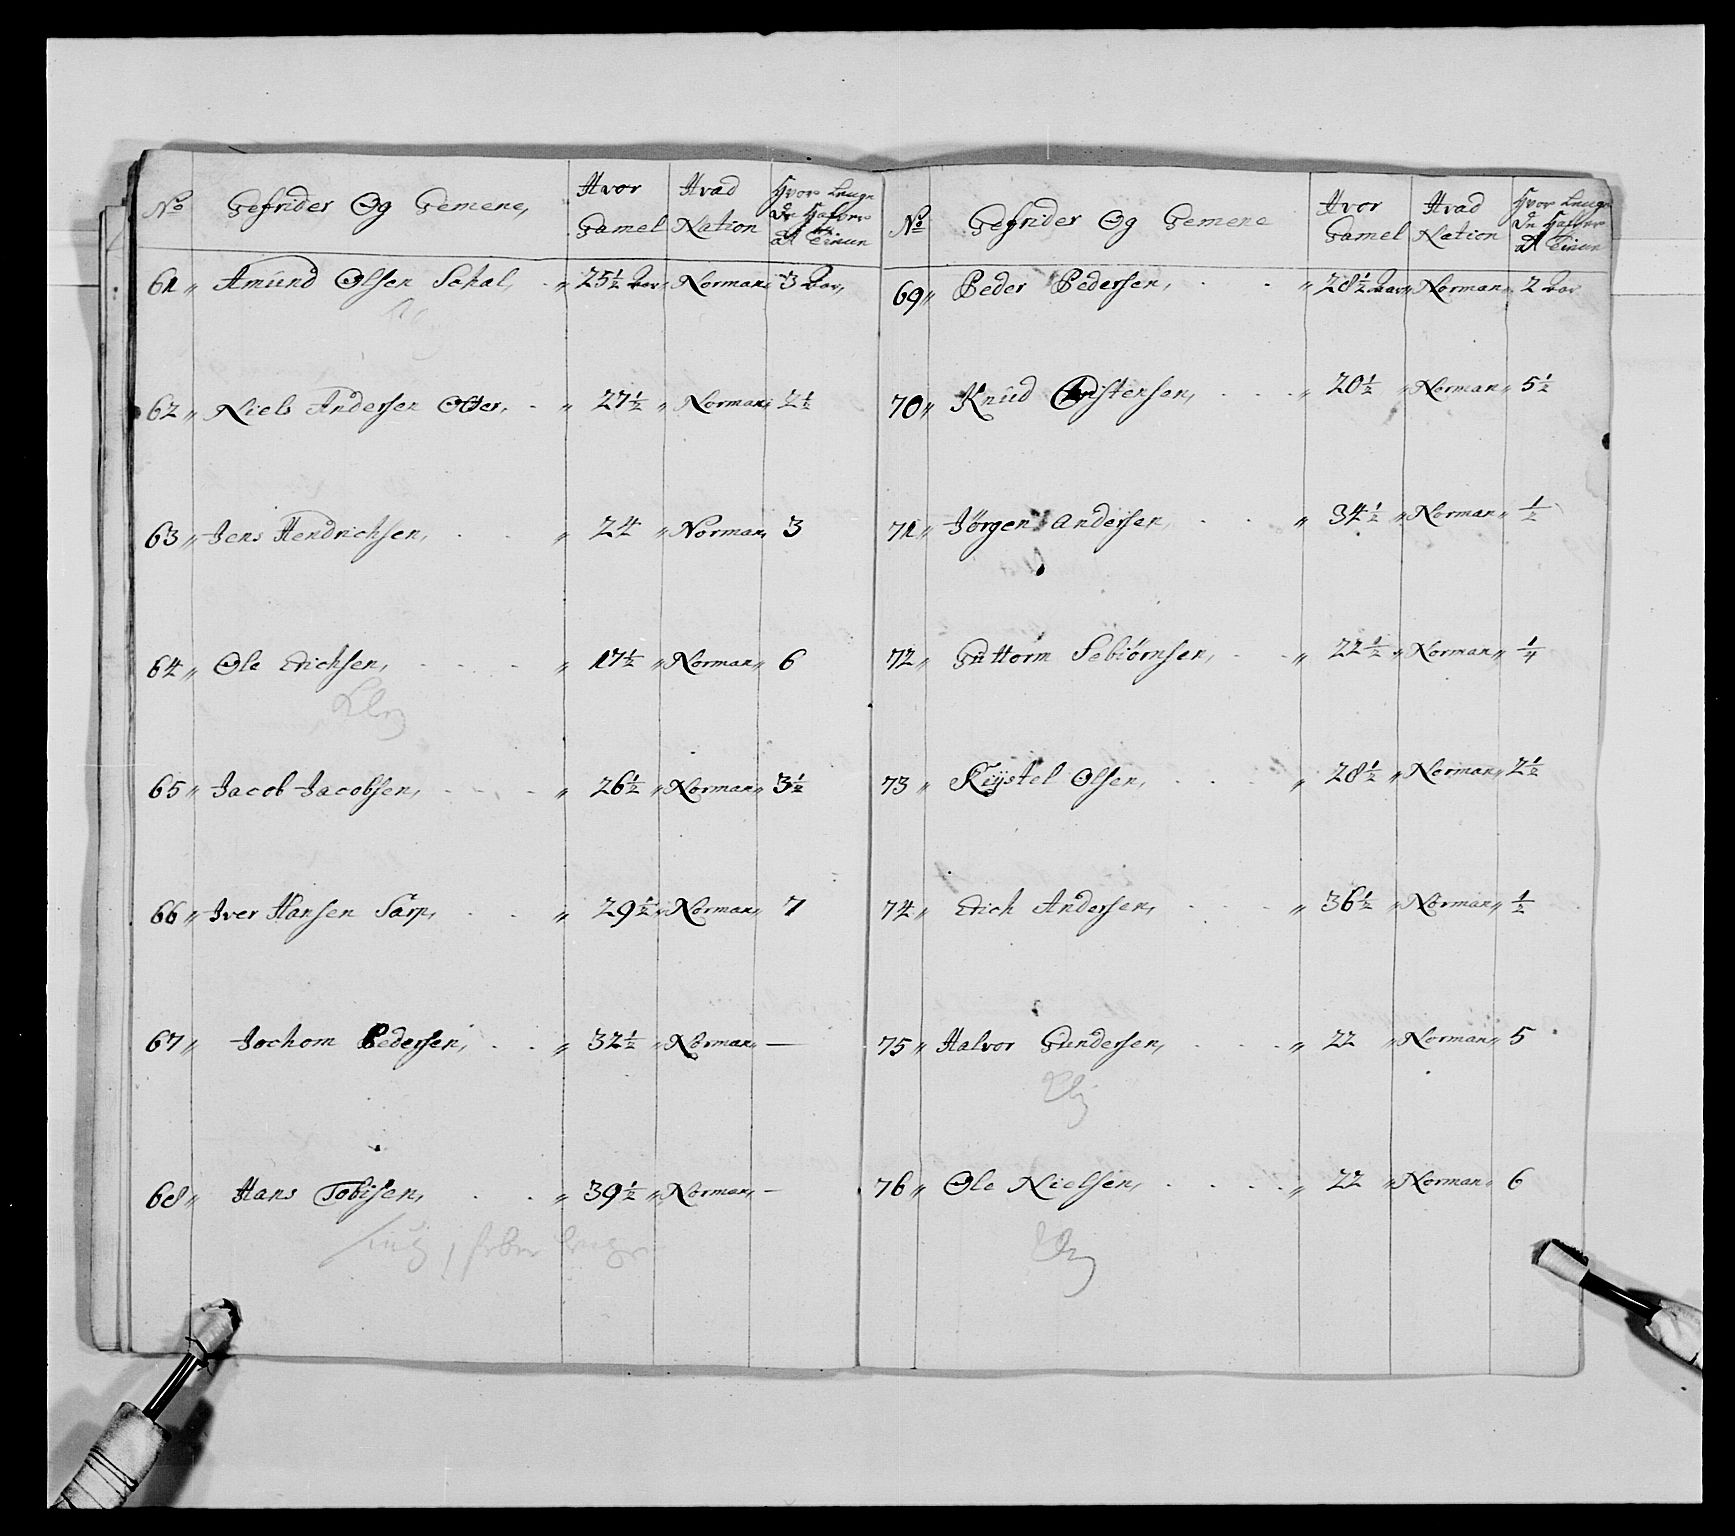 No Gefrider Og Gemene, Hvor Gamel Hvad Nation Hvor Lenge De Hafver at Tiene
61 „ Amund Olsen Sahal, „ 25½ Aar „ Norman „ 3 Aar,
62 „ Niels Andersen Otter, „ 27½ „ Norman „ 2½
63 „ Jens Hendrichsen, „ 24 „ Norman, 3
64 „ Ole Erichsen, „ 17½ „ Norman „ 6
65 „ Jacob Jacobsen, „ 26½ „ Norman „ 3½
66 „ Iver Hansen Sarp, „ 29½ „ Norman „ 7
67 „ Jochom Pedersen, „ 32½ „ Norman „ —
68 „ Hans Tobisen, „ 39½ „ Norman „ —
No Gefrider Og Gemene Hvor Gamel Hvad Nation Hvor Lenge De Hafver at Tiene
69 „ Peder Pedersen, „ 28½ Aar „ Norman „ 2 Aar
70 „ Knud Christensen, „ 20½ „ Norman „ 5½
71 „ Jørgen Andersen, „ 34½ „ Norman „ ½
72 „ Guttorm Sebiørnsen, „ 22½ „ Norman „ ¼
73 „ Kiystel Olsen, „ 28½ „ Norman „ 2½
74 „ Erich Andersen, „ 36½ „ Norman „ ½
75 „ Halvor Gundersen, „ 22 „ Norman „ 5
76 „ Ole Nielsen, „ 22 „ Norman „ 6